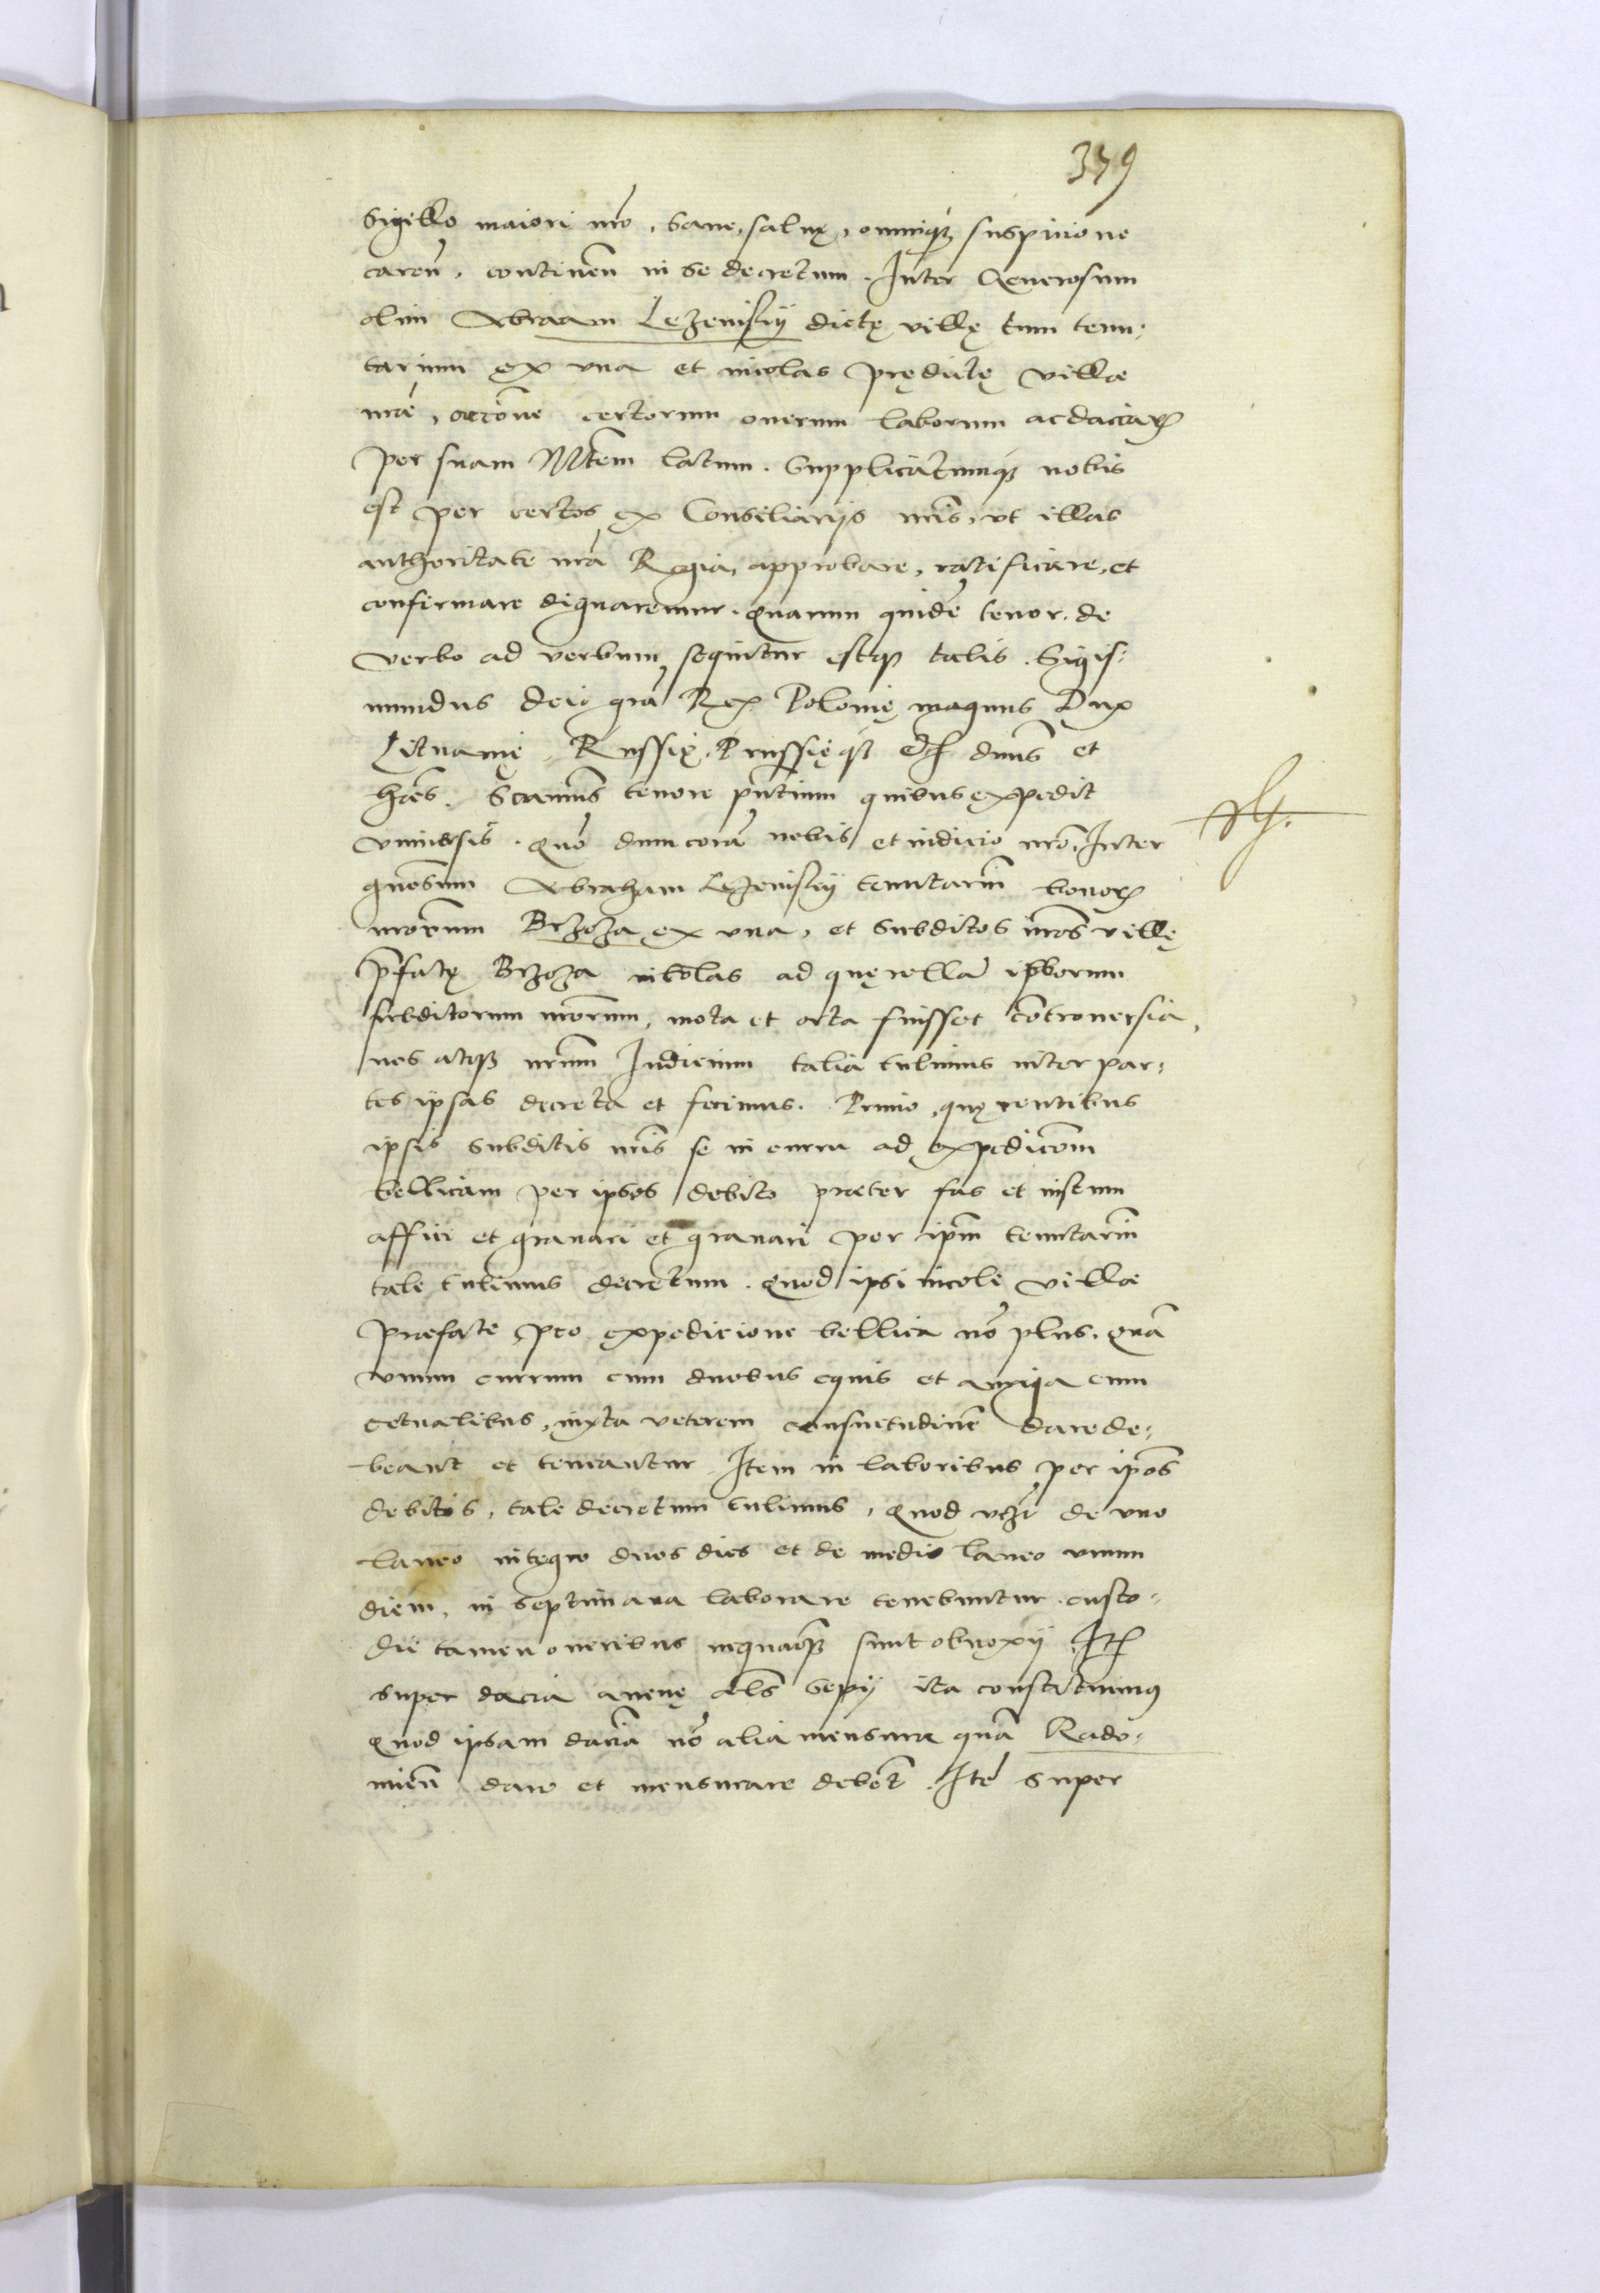 379
Sigillo maiori nrō, Sane, salvę, omniq₃ suspitione
careñ, continen̄ in se decretum. Inter Generosum
olim Abraam Leżenskij dictę villę tum tenu-
tarium ex vna et incolas prędictę villæ
nrae, occōne certorum onerum laborum ac daciaꝝ
per suam Mtēm latum. Supplicatumq₃ nobis
est per certos ex Consiliarijs nris, vt illas
authoritate nrā Regia, approbare, ratificare, et
confirmare dignaremur. Quarum quidē tenor, de
verbo ad verbum sequitur estq₃ talis. Sigis-
mundus dei grā Rex Polonię magnus Dux
Lituanię, Russię, Prussięq₃ Etc dnūs et
hæres. Scimūs tenore pntium quibus expedit
vniuersis. Quō dum corā nobis et iudicio nrō, Inter
gnosum Abraham Leżenskij tenutariū bonoꝝ
nrorum Brzoza ex vna, et Subditos nros villę
p̄fatę Brzoza incolas ad querellā ipsorum
subditorum nrorum, mota et orta fuisset cōntrouersia,
nos atq₃ nrum Iudicium talia tulimus inter par-
tes ipsas decreta et fecimus. Primo, quęrentibus
ipsis Subditis nris se in curru ad expedicōem
bellicam per ipsos debito præter fas et iustum
affici et grauari et grauari per ipm̄ tenutariū
tale tulimus decretum. Quod ipsi incolę villæ
præfate, pro expedicione bellica nō plus, quā
vnum currum cum duobus equis et auriga cum
victualibus, iuxta veterem consuetudinē dare de-
beant et teneantur Item in laboribus per ipsos
debitis, tale decretum tulimus, Quod vtzr de vno
laneo integro duos dies et de medio laneo vnum
diem, in Septimana laborare tenebuntur, custo-
die tamen oneribus sunt obnoxij. Itē
super dacia auenę als Sepij ita constituimus
Quod ipsam daciā nō alia mensura quā Rado-
mien̄ dare et mensurare debent. Itē super